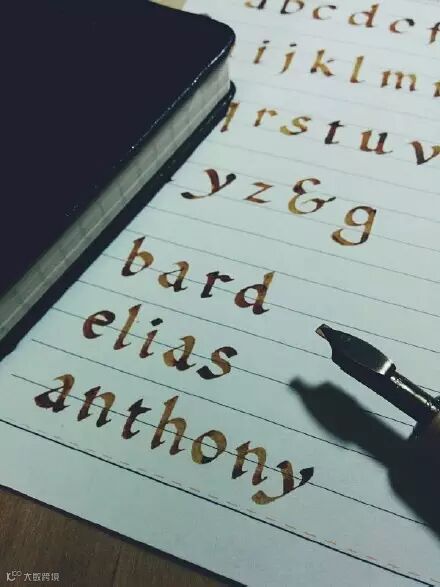 a b c d e f
i j k l m n
q r s t u v
y z & g
bard
elias
anthony
大数跨境